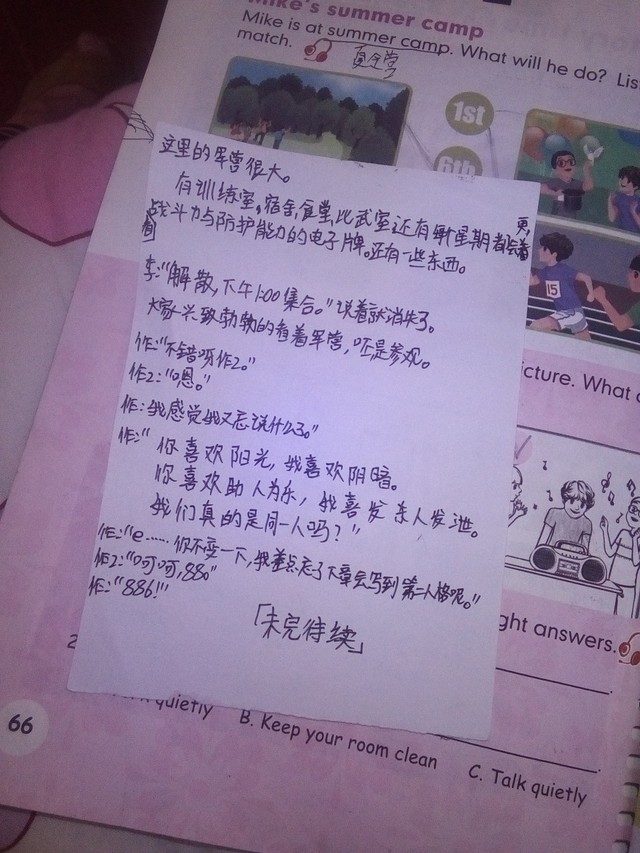 Mike's summer camp
Mike is at summer camp. What will he do? Lis
match.
夏令营
1st
6th
这里的军营很大。
有训练室,宿舍,食堂,比武室还有每星期都会更
战斗力与防护能力的电子牌。还有一些东西。
李:"解散,下午1:00集合。"说着就消失了。
大家兴致勃勃的看着军营,吓是参观。
作:"不错呀作2。"
作2:"嗯。"
作:我感觉我又忘说什么了。"
作:"你喜欢阳光,我喜欢阴暗。
你喜欢助人为乐,我喜发杀人发泄。
我们真的是同一人吗?"
作:"e……你不变一下,我差点忘了下章会写到第二人格呢。"
作2:"呵呵,88。"
作:"886!"
「未完待续」
15
icture. What
ght answers.
quietly
B. Keep your room clean
C. Talk quietly
66